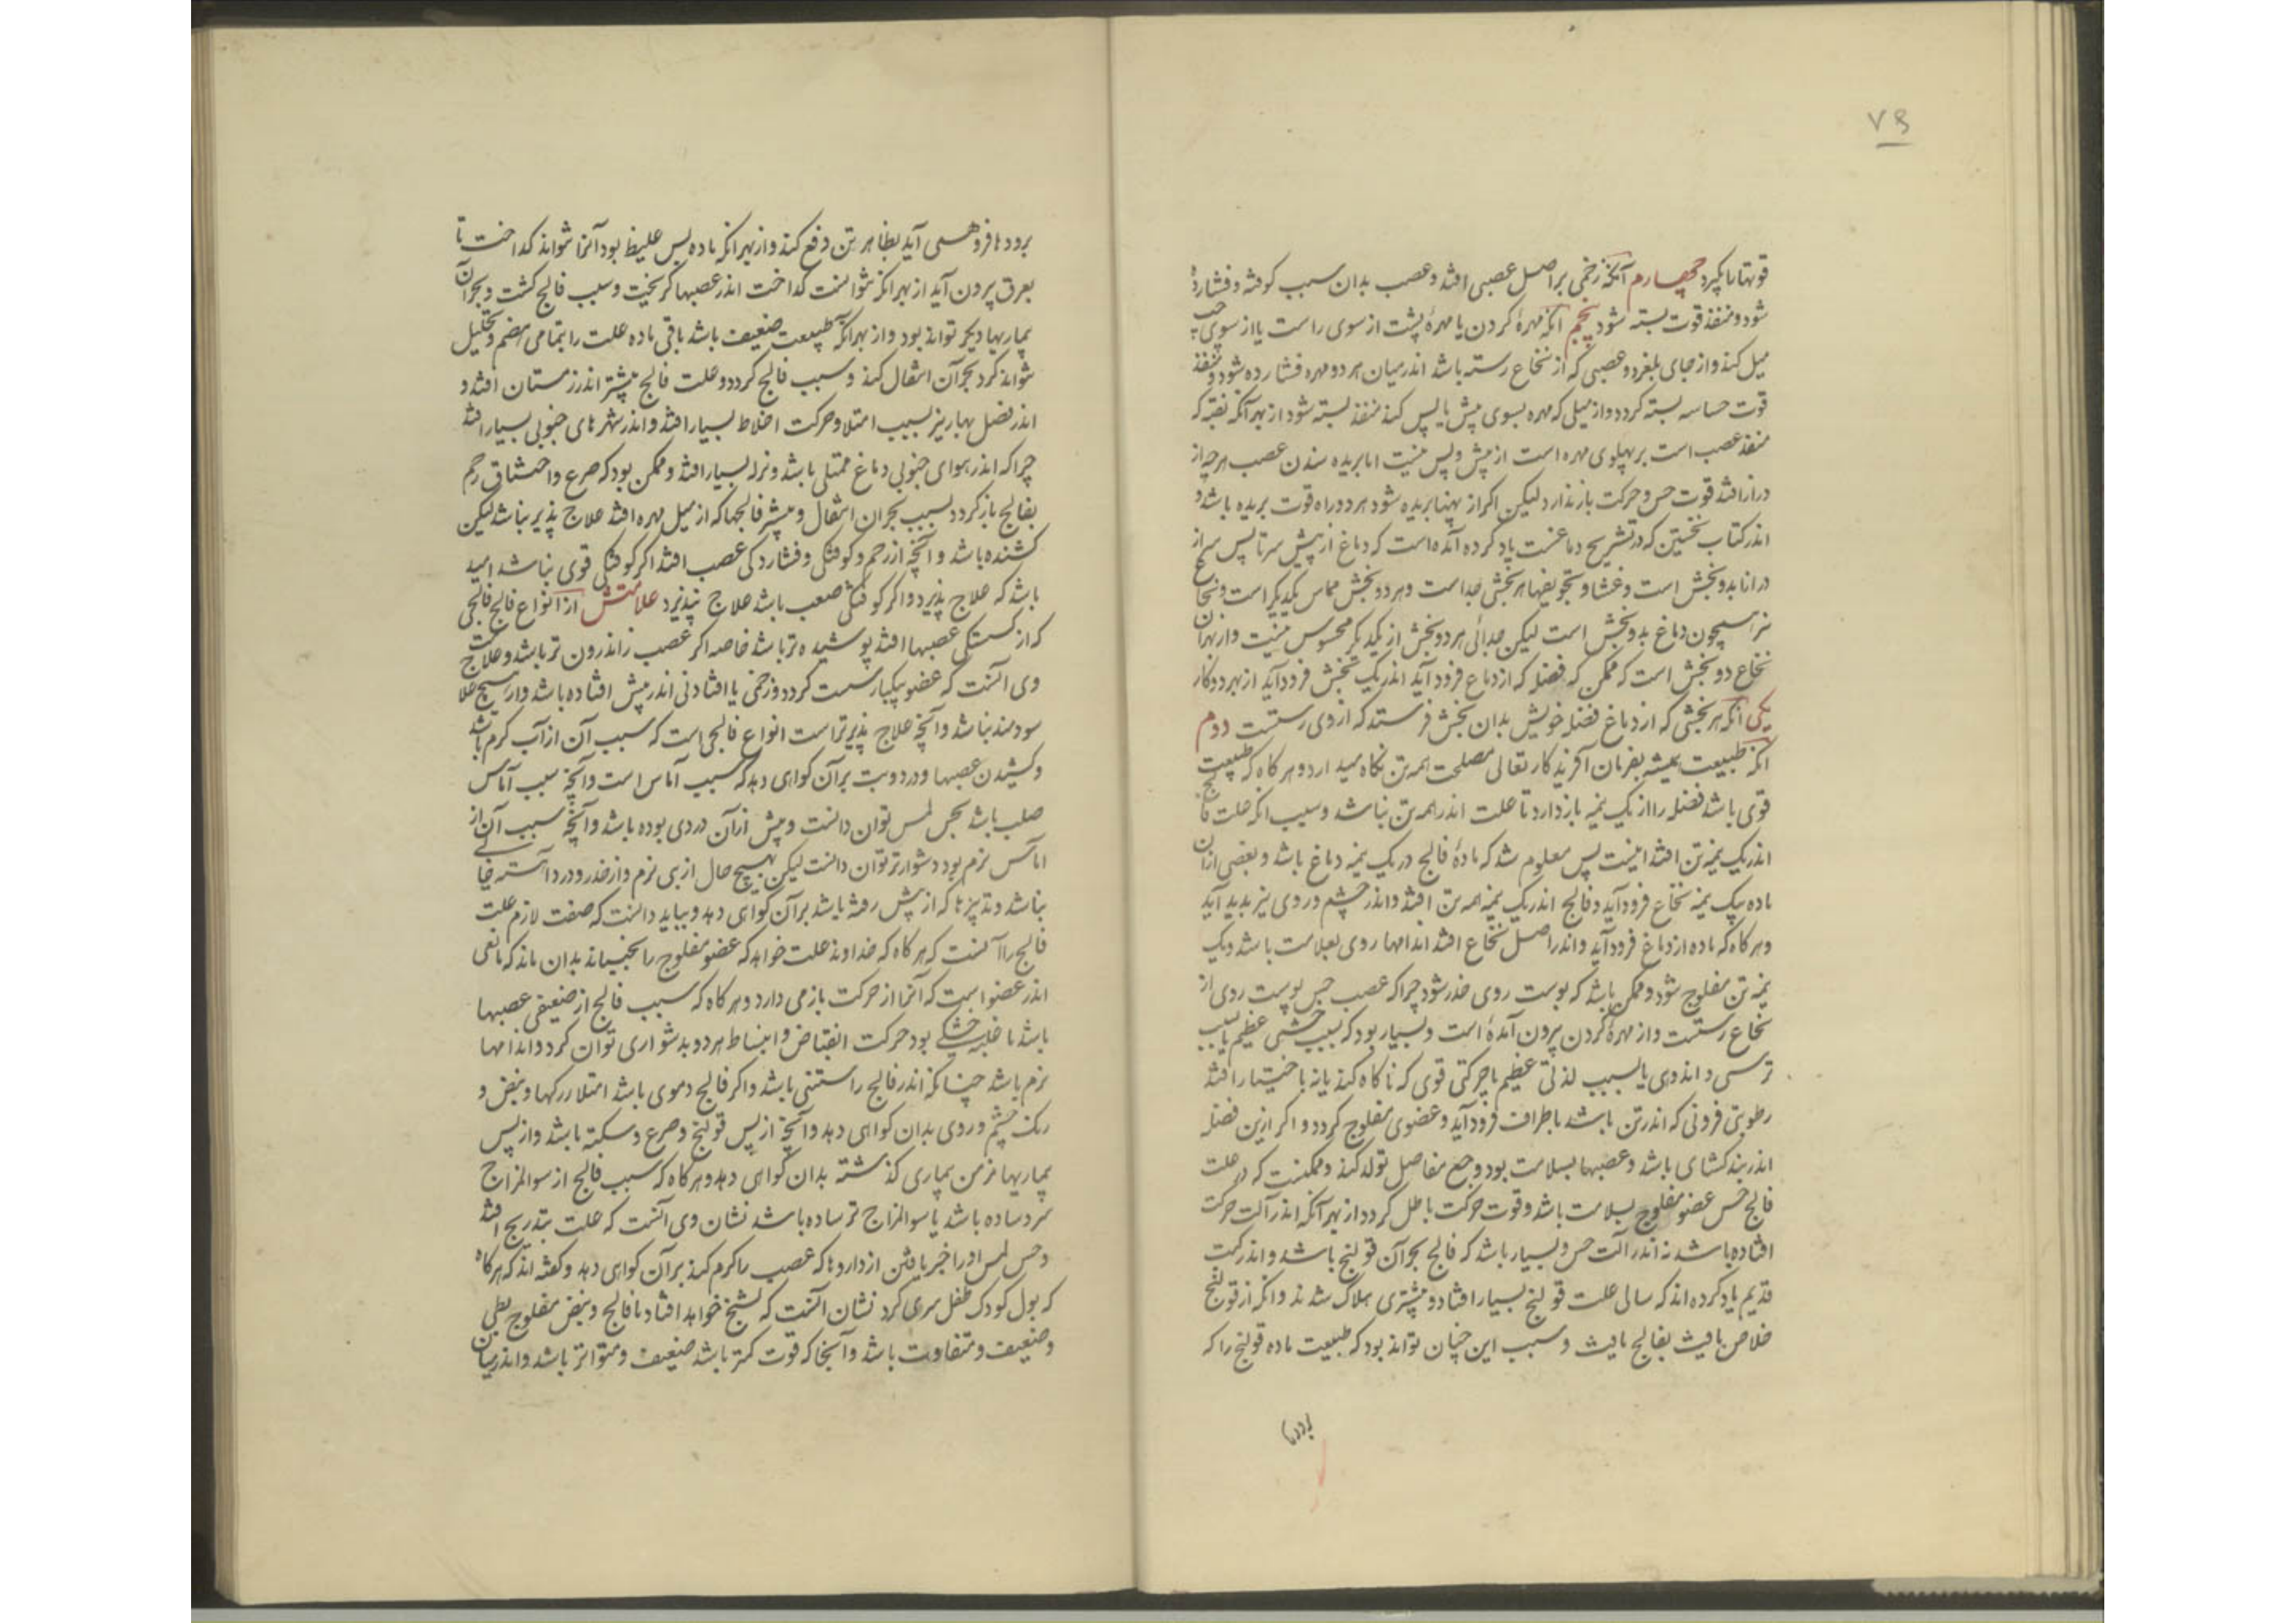 ۷۹
قوتها را بگیرد چهارم آنکه زخمی بر اصل عصبی افتد و عصب بدان سبب کوفته و فشارده
شود و منفذ قوت بسته شود پنجم انکه مهرهٔ کردن یا مهرهٔ پشت از سوی راست یا از سوی چپ
میل کند و از جای بلغزد و عصبی که از نخاع رسته باشد اندر میان هر دو مهره فشارده شود و منفذ
قوت حساسه بسته کردد و از میلی که مهره بسوی پیش یا پس کند منفذ بسته شود از بهر آنکه نقبه که
منفذ عصب است بر پهلوی مهره است از پیش و پس نیست اما بریده شدن عصب هرچه از
درازا افتد قوت حس و حرکت باز ندارد لیکن اکر از پهنا بریده شود هر دو راه قوت بریده باشد و
اندر کتاب نخستین که در تشریح دماغست یاد کرده آمده است که دماغ از پیش سر تا پس سر از
درازنا بدو بخش است و غشا و تجویفها هر بخشی جداست و هر دو بخش مماس یکدیکر است و نخاع
نیز همچون دماغ بدو بخش است لیکن جدائی هر دو بخش از یکدیکر محسوس نیست و از بهر آن
نخاع دو بخش است که ممکن که فضله که از دماغ فرود آید اندر یک بخش فرود آید از بهر دو کار
یکی آنکه هر بخشی که از دماغ فضله خویش بدان بخش فرستد که از وی رستست دوم
آنکه طبیعت همیشه بفرمان آفریدکار تعالی مصلحت همه تن نکاه میدارد و هر کاه که طبیعت
قوی باشد فضله را از یک نیمه باز دارد تا علت اندر همه تن نباشد و سبب انکه علت فالج
اندر یک نیمه تن افتد اینست پس معلوم شد که مادهٔ فالج در یک نیمه دماغ باشد و بعضی از آن
ماده بیک نیمه نخاع فرود آید و فالج اندر یک نیمه همه تن افتد و اندر چشم و روی نیز پدید آید
و هر کاه که ماده از دماغ فرود آید و اندر اصل نخاع افتد اندامها روی بسلامت باشد و یک
نیمه تن مفلوج شود و ممکن باشد که پوست روی خدر شود چرا که عصب حس پوست روی از
نخاع رستست و از مهرهٔ کردن بیرون آمدهٔ است و بسیار بود که بسبب خشمی عظیم یا بسبب
ترسی و اندوهی یا بسبب لذتی عظیم یا حرکتی قوی که ناکاه کند یا نه باختیار افتد
رطوبتی فزونی که اندر تن باشد باطراف فرود آید و عضوی مفلوج کردد و اکر ازین فضله
اندر بندکشای باشد و عصبها بسلامت بود وجع مفاصل تولد کند و ممکنست که در علت
فالج حس عضو مفلوج بسلامت باشد و قوت حرکت باطل کردد از بهر آنکه اندر آلت حرکت
افتاده باشد نه اندر آلت حس و بسیار باشد که فالج بحران قولنج باشد و اندر کتب
قدیم یاد کرده اند که سالی علت قولنج بسیار افتاد و بیشتری هلاک شدند و انکه از قولنج
خلاص یافت بفالج یافت و سبب این چنان تواند بود که طبیعت ماده قولنج را که
برودها
برودها فرو همی آید بظاهر تن دفع کند و از بهر انکه ماده بس غلیظ بود آنرا نتواند کداخت تا
بعرق بیرون آید از بهر انکه نتوانست کداخت اندر عصبها کریخت و سبب فالج کشت و بحران
بیماریها دیکر تواند بود و از بهر آنکه طبیعت ضعیف باشد باقی ماده علت را بتمامی هضم و تحلیل
نتواند کرد بحران انتقال کند و سبب فالج کردد و علت فالج بیشتر اندر زمستان افتد و
اندر فصل بهار نیز بسبب امتلا و حرکت اخلاط بسیار افتد و اندر شهرهای جنوبی بسیار افتد
چرا که اندر هوای جنوبی دماغ ممتلی باشد و نزله بسیار افتد و ممکن بود که صرع و اختناق رحم
بفالج باز کردد بسبب بحران انتقال و بیشتر فالجها که از میل مهره افتد علاج پذیر نباشد لیکن
کشنده باشد و آنچه از زخم و کوفتکی و فشاردکی عصب افتد اکر کوفتکی قوی نباشد امید
باشد که علاج پذیرد و اکر کوفتکی صعب باشد علاج نپذیرد علامتش از انواع فالج فالجی
که از کسستکی عصبها افتد پوشیده تر باشد خاصه اکر عصب ز اندرون تر باشد و علامت
وی آنست که عضو بیکبار سست کردد و زخمی یا افتادنی اندر پیش افتاده باشد و از هیچ علاج
سودمند نباشد و آنچه علاج پذیرتر است انواع فالجی است که سبب آن از آب کرم باشد
و کشیدن عصبها و درد و تب بر آن کواهی دهد که سبب آماس است و آنچه سبب آماس
صلب باشد بحس لمس توان دانست و پیش از آن دردی بوده باشد و آنچه سبب آن از
اماس نرم بود دشوارتر توان دانست لیکن بهیچ حال از تبی نرم و از خدر و درد آهسته خالی
نباشد و تدبیرها که از پیش رفته باشد بر آن کواهی دهد و بباید دانست که صفت لازم علت
فالج را آنست که هر کاه که خداوند علت خواهد که عضو مفلوج را بجنباند بدان ماند که مانعی
اندر عضو است که آنرا از حرکت باز می دارد و هر کاه که سبب فالج از ضعیفی عصبها
باشد با غلبه خشکی بود حرکت انقباض و انبساط هر دو بدشواری توان کرد و اندامها
نرم باشد چنانکه اندر فالج راستنی باشد و اکر فالج دموی باشد امتلا رکها و نبض و
رنک چشم و روی بدان کواهی دهد و آنچه از پس قولنج و صرع و سکته باشد و از پس
بیماریها مزمن بیماری کذشته بدان کواهی دهد و هر کاه که سبب فالج از سوالمزاج
سرد ساده باشد یا سوالمزاج تر ساده باشد نشان وی آنست که علت بتدریج افتد
و حس لمس او را خبر یافتن از داروها که عصب را کرم کند بر آن کواهی دهد و کفته اند که هر کاه
که بول کودک طفل سبزی کرد نشان آنست که تشنج خواهد افتاد یا فالج و نبض مفلوج بطی
و ضعیف و متفاوت باشد و آنجا که قوت کمتر باشد ضعیف و متواتر باشد و اندر میان